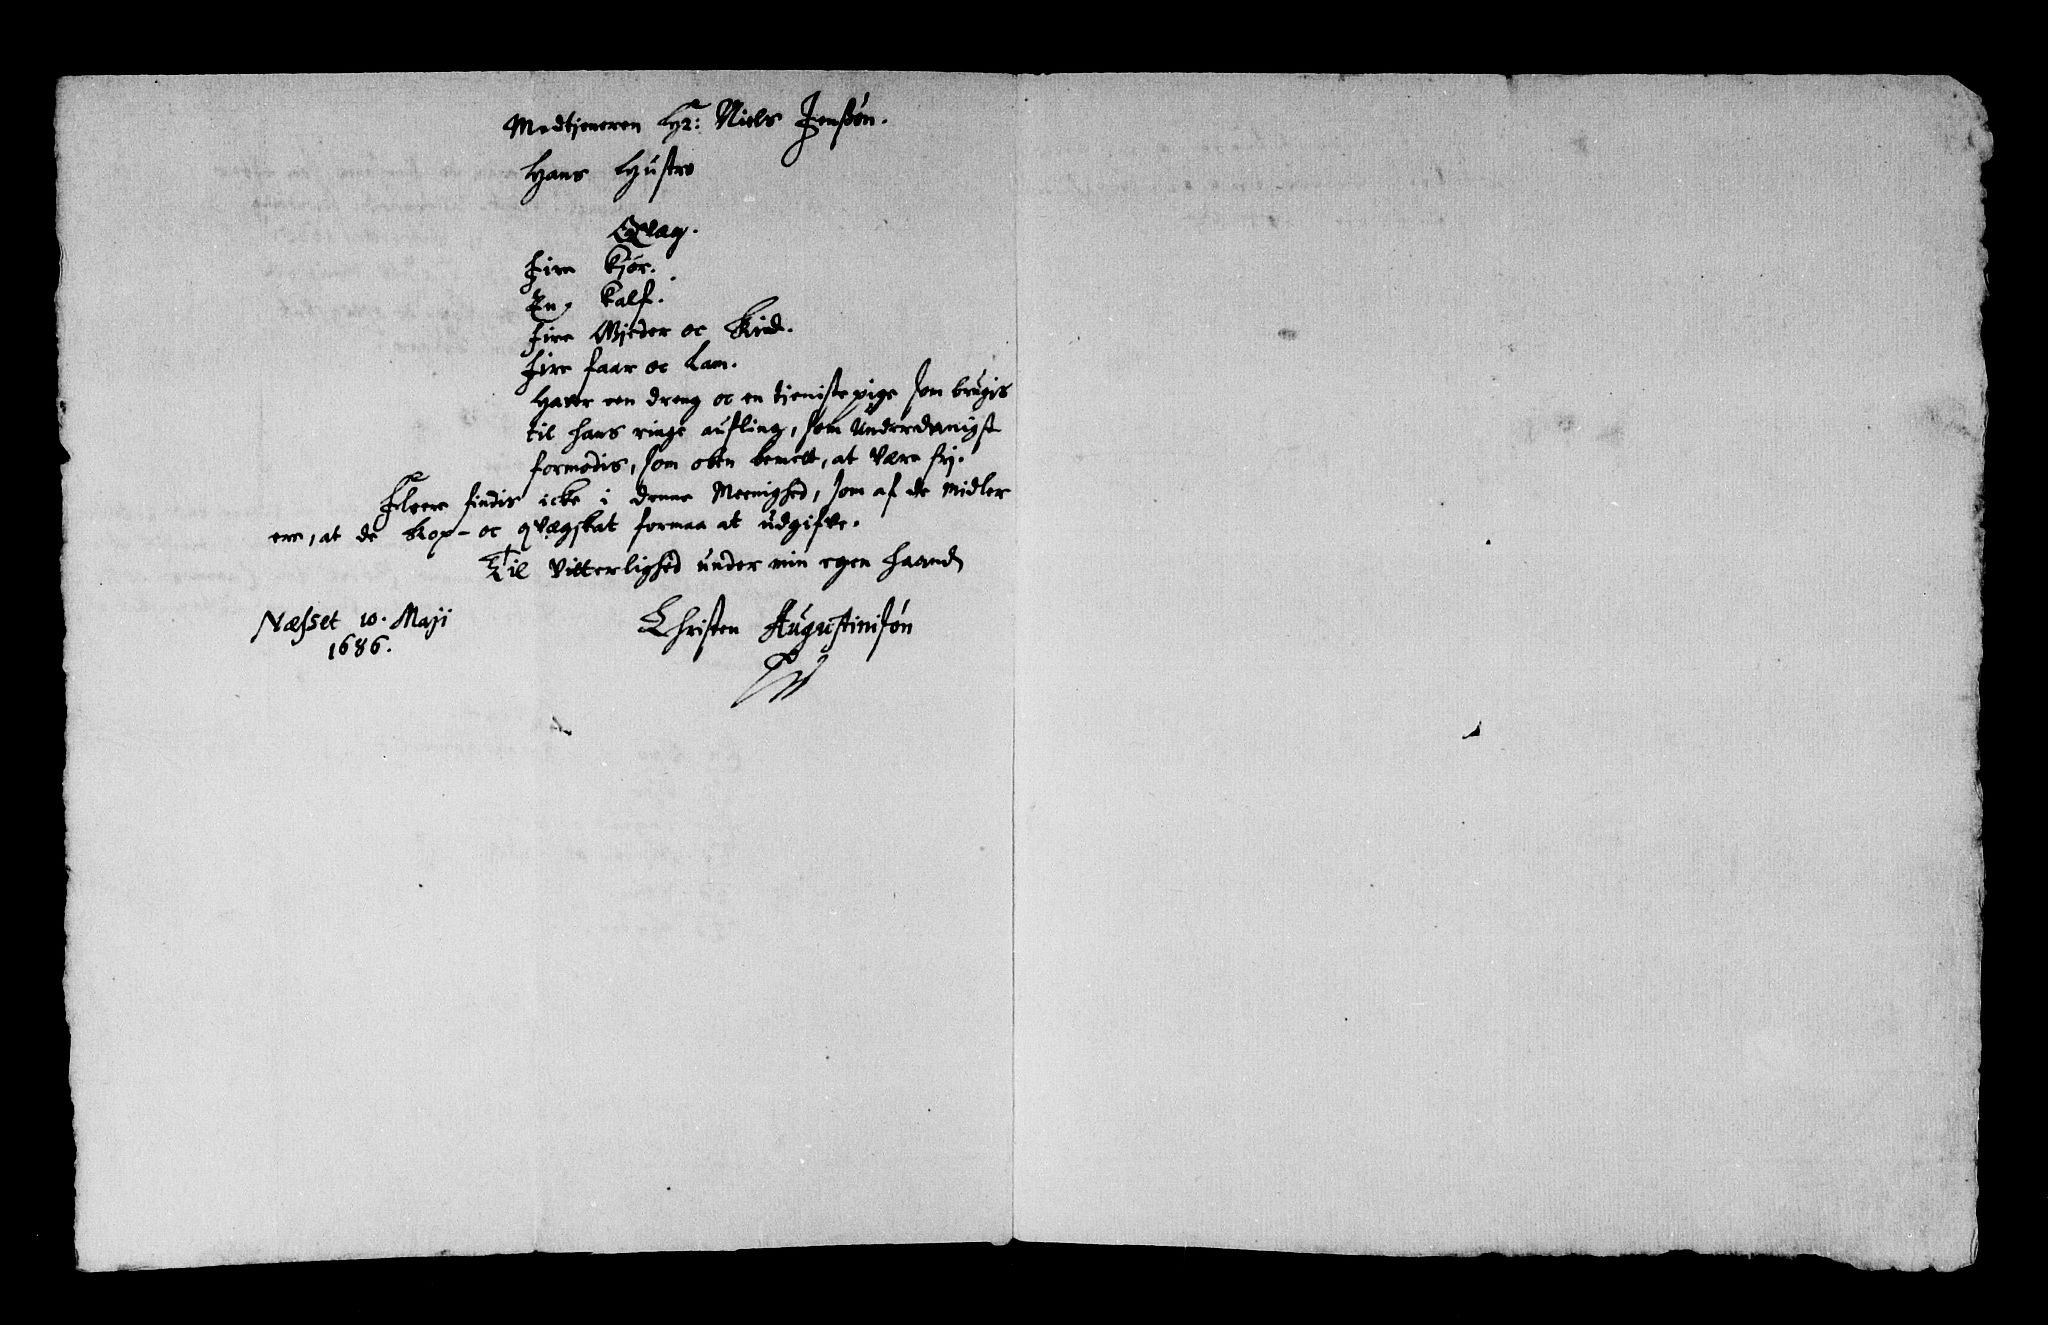 Medtjeneren Hr: Niels Jenssøn.
Hans Hustro
Qvæg.
Fire Kjør.
En Kalf.
Fire Gjeder oc Kid.
Fire faar oc Lam.
Haver een dreng oc en tjeniste pige som brugis
til hans ringe aufling, som Underdanigst
formodis, som oben bemelt, at være frj.
Fleere findis icke i denne Meenighed, som af de Midler
ere, at de Kop- oc qvægskat formaa at udgifve.
Til Vitterlighed under min egen haand
Næsset 10. Maji
1686.
Christen Augustinisøn